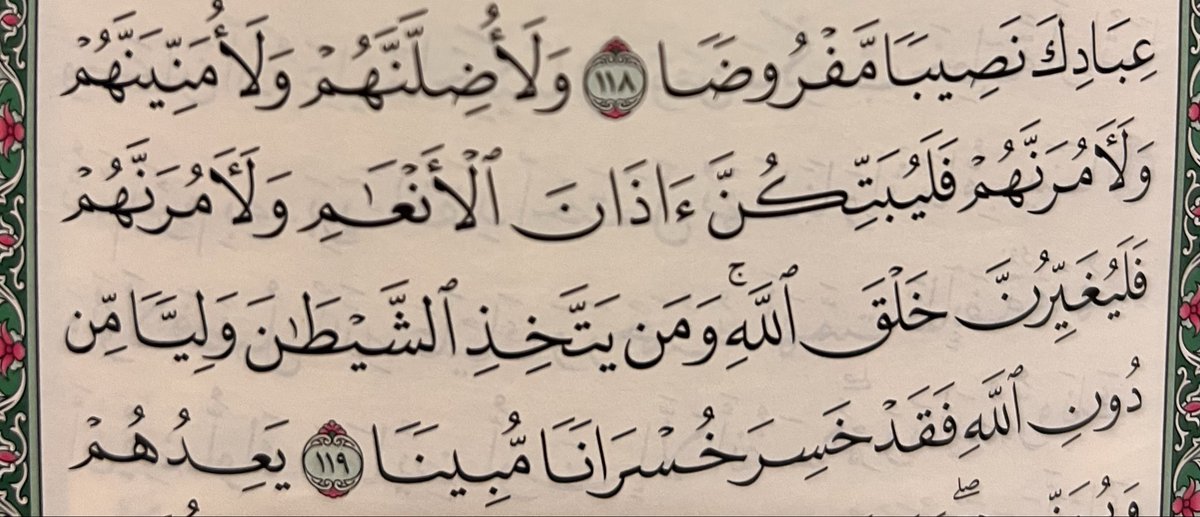 عِبَادِكَ نَصِيبًا مَّفْرُوضًا ١١٨ وَلَأُضِلَّنَّهُمْ وَلَأُمَنِّيَنَّهُمْ
وَلَأٓمُرَنَّهُمْ فَلَيُبَتِّكُنَّ ءَاذَانَ ٱلْأَنْعَٰمِ وَلَأٓمُرَنَّهُمْ
فَلَيُغَيِّرُنَّ خَلْقَ ٱللَّهِۚ وَمَن يَتَّخِذِ ٱلشَّيْطَٰنَ وَلِيًّا مِّن
دُونِ ٱللَّهِ فَقَدْ خَسِرَ خُسْرَانًا مُّبِينًا ١١٩ يَعِدُهُمْ